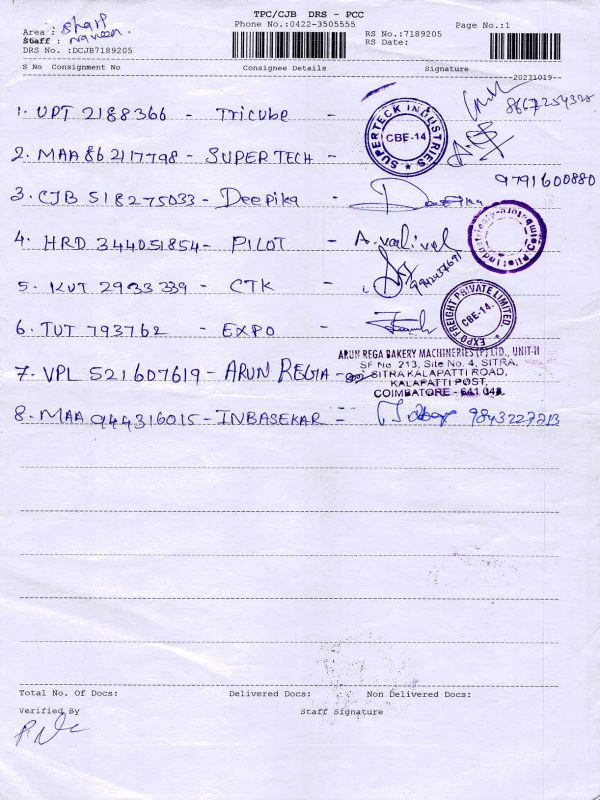 TPC/CJB DRS - PCC
Phone No:0422-3505555 Page No.:1
Area : Sharp
Staff : Naveen.
RS No.:7189205
DRS No. :DCJB7189205 RS Date:
S No Consignment No Consignee Details Signature
20231019
1. UPT 2188366 - Tricube -
SUPERTECK INDUSTRIES CBE-14
2. MAA 86 217798 - SUPER TECH -
9791600880
3. CJB 518275033 - Deepika - Deepika
4. HRD 344051854 - PILOT - A. Vadivel
Pilot Industries, Coimbatore
5. KUT 2933339 - CTK -
EXPO FREIGHT PRIVATE LIMITED. CBE-14.
6. TUT 793762 - EXPO -
ARUN REGA BAKERY MACHINERIES (P) LTD., UNIT-II
7. VPL 521607619 - ARUN REGA -
SF No. 213, Site No. 4, SITRA,
SITRA KALAPATTI ROAD,
KALAPATTI POST,
COIMBATORE - 641 048.
8. MAA 944316015 - INBASEKAR - 9843227213
Total No. Of Docs: Delivered Docs: Non Delivered Docs:
Verified By Staff Signature